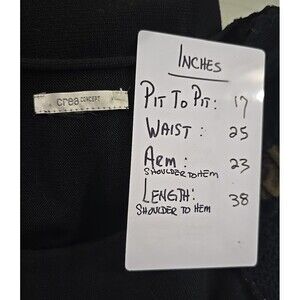 crea CONCEPT
INCHES
PIT TO PIT: 17
WAIST: 25
ARM: 23
SHOULDER TO HEM
LENGTH: 38
SHOULDER TO HEM